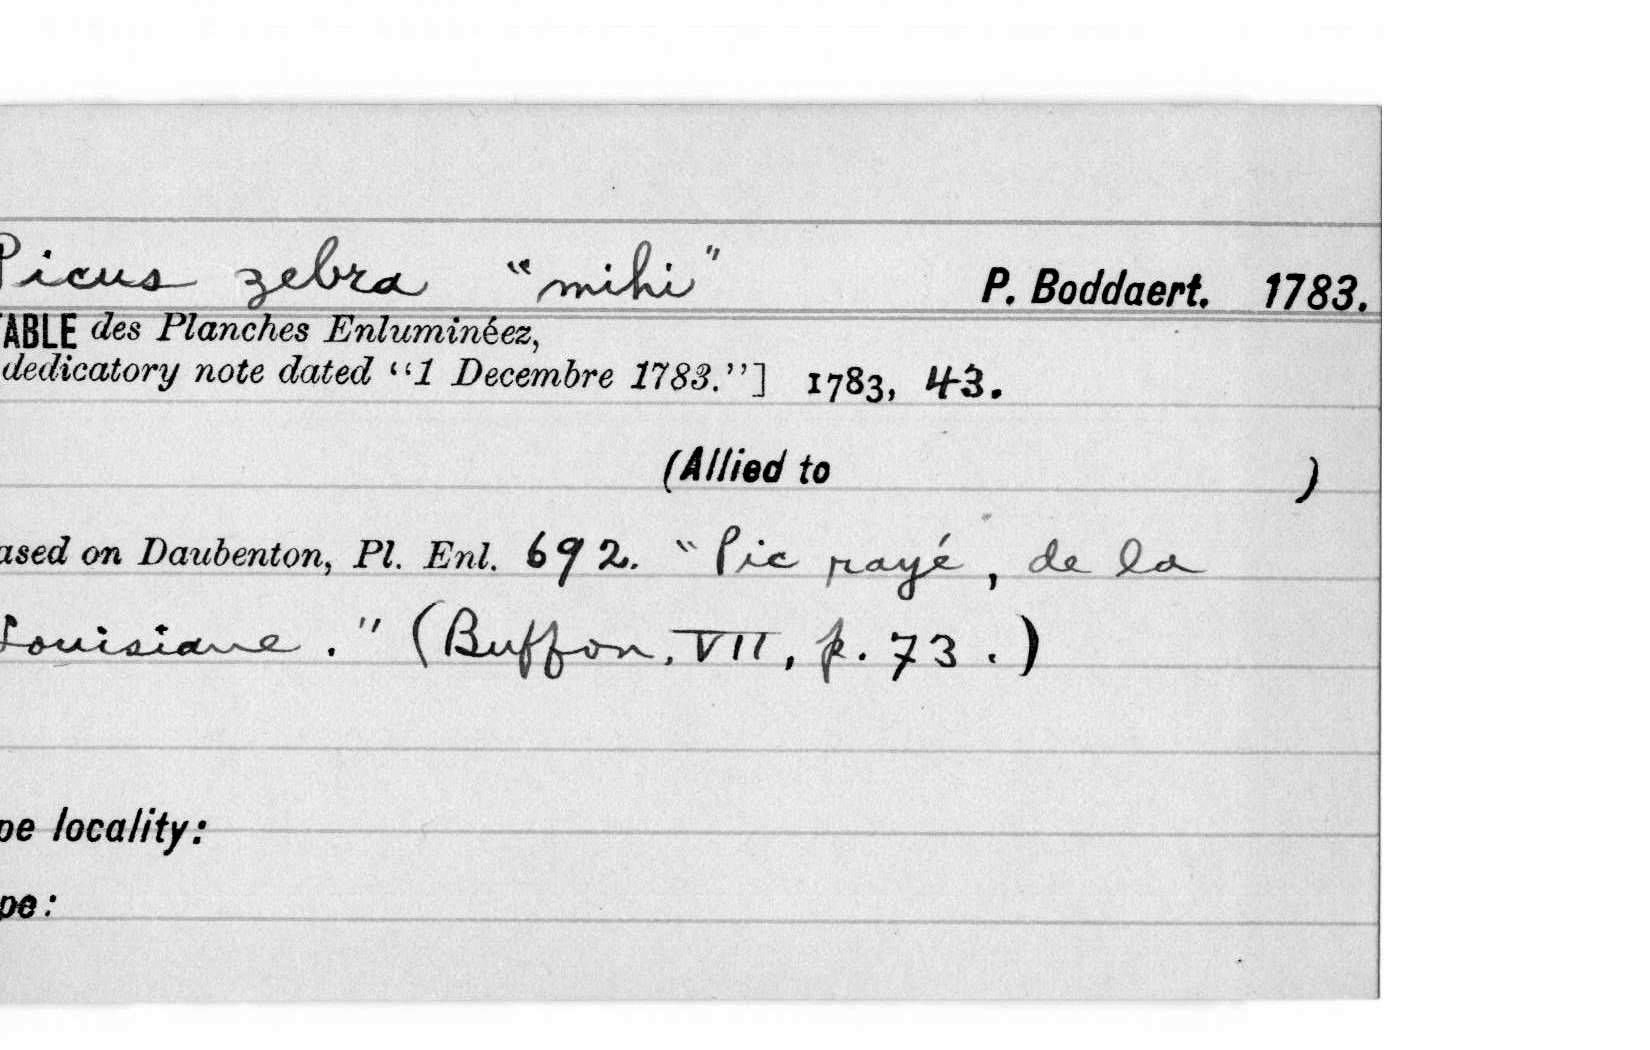 Picus zebra "mihi" P. Boddaert. 1783.
TABLE des Planches Enluminéez,
dedicatory note dated "1 Decembre 1783."] 1783, 43.
(Allied to )
ased on Daubenton, Pl. Enl. 692. "Pic rayé, de la
Louisiane." (Buffon, VII, p. 73.)
pe locality:
pe: